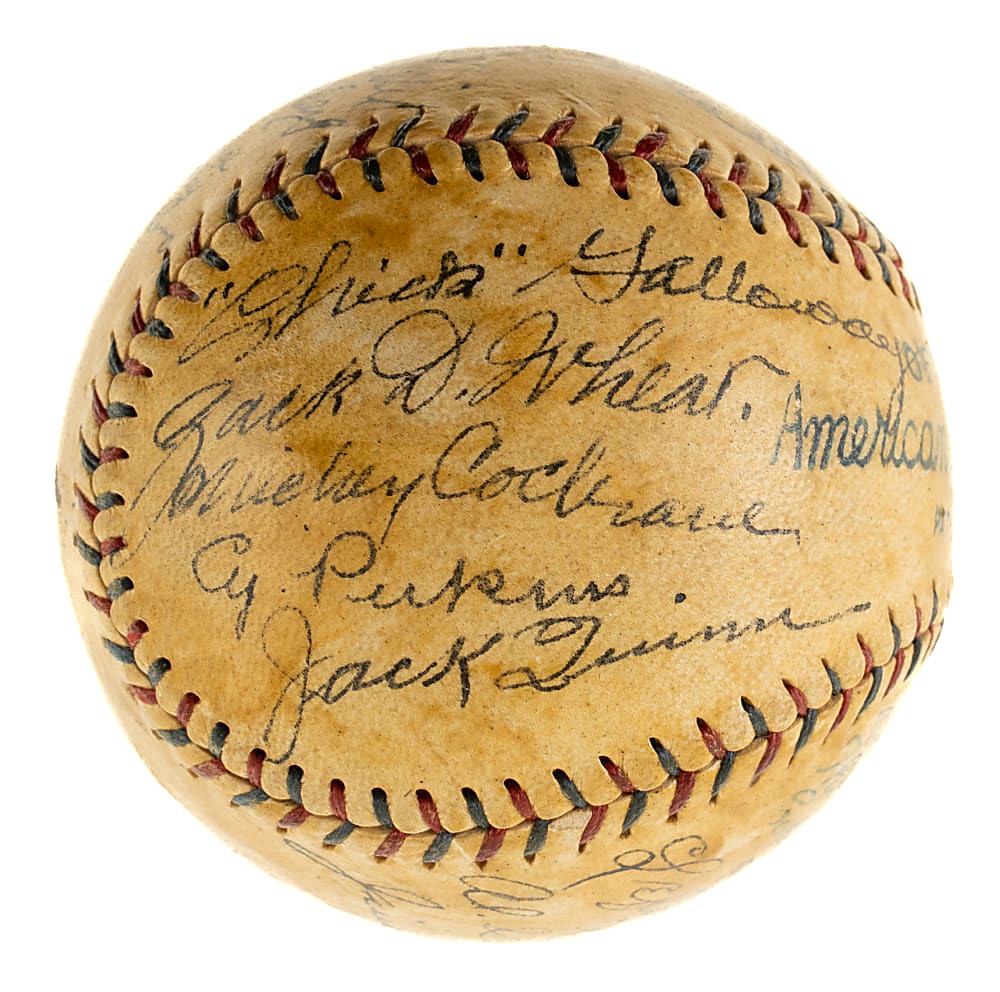 "Chick" Galloway
Zack D. Wheat.
Mickey Cochrane
American
Cy Perkins
Jack Quinn